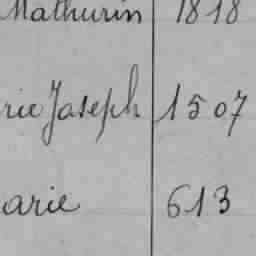 Mathurin 1818
rie Joseph 1507
arie 613